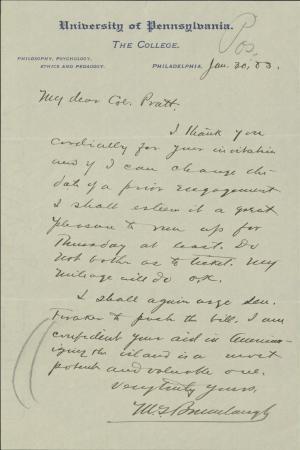 University of Pennsylvania.
THE COLLEGE.
PHILOSOPHY, PSYCHOLOGY,
ETHICS AND PEDAGOGY.
PHILADELPHIA, Jan. 30, 03.
My dear Col. Pratt:
I thank you
cordially for your invitation
and if I can change the
date of a prior engagement
I shall esteem it a great
pleasure to run up for
Thursday at least. Do
not bother as to ticket. My
mileage will do o.k.
I shall again urge Sen.
Foraker to push the bill. I am
confident your aid in American-
izing the island is a most
potent and valuable one.
Very truly yours,
M. G. Brumbaugh